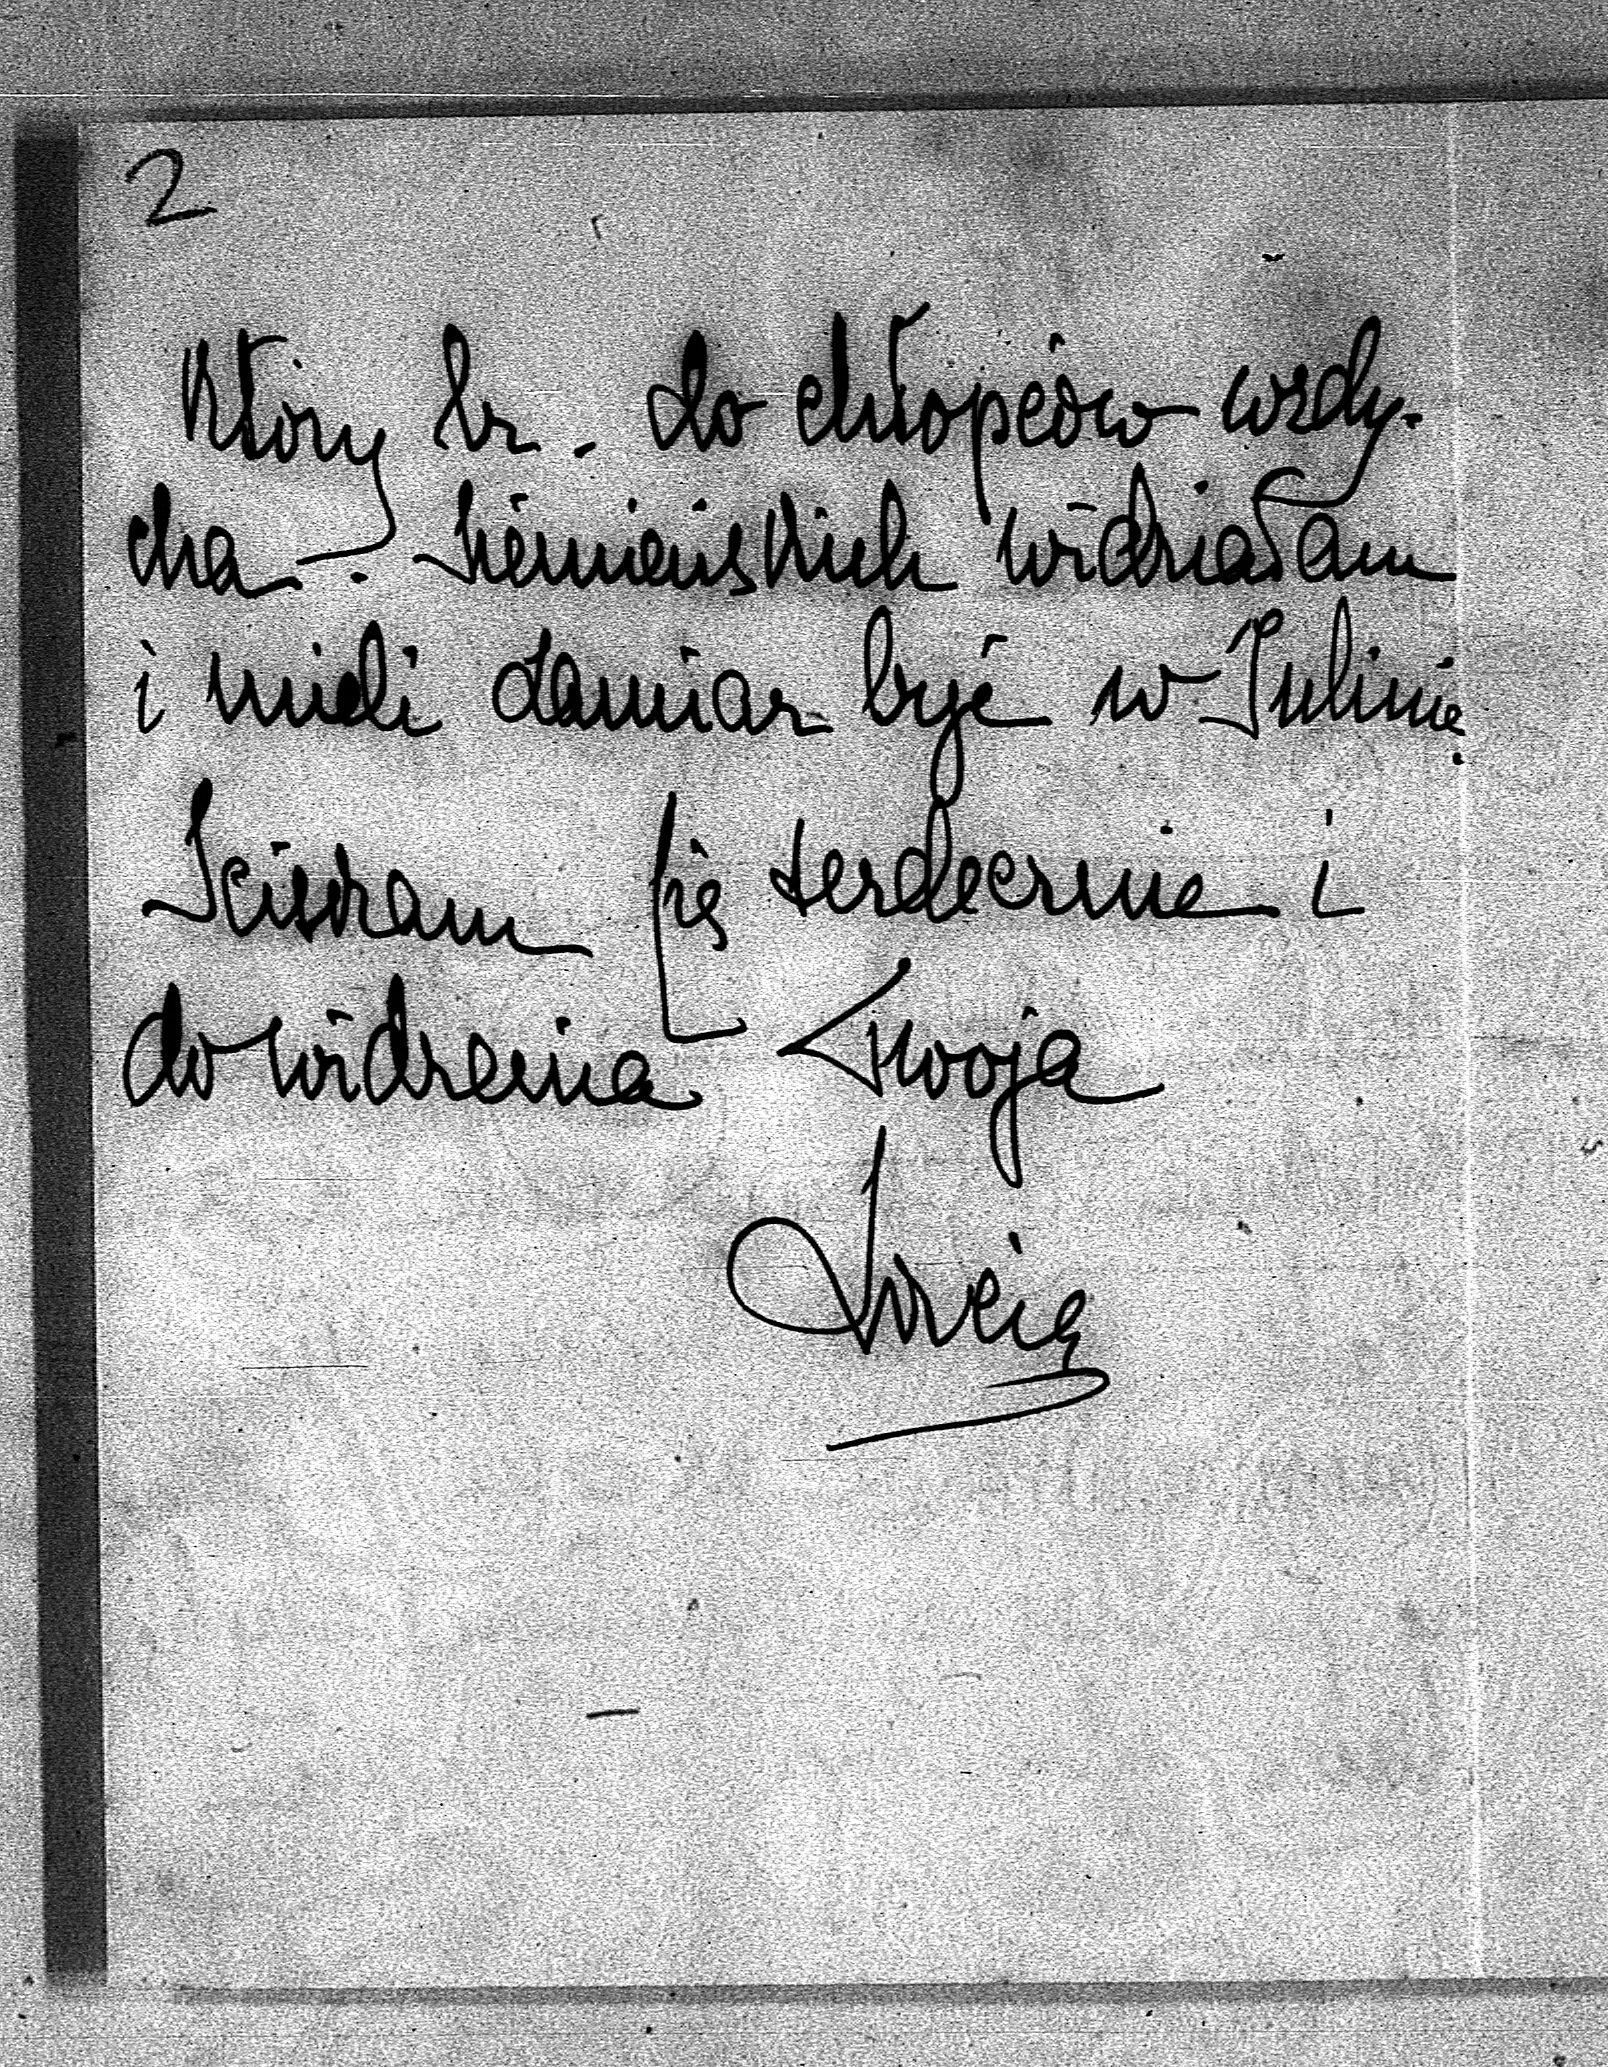 2
Który br. do chłopców wzdy-
cha. Siemieńskich widziałam
i mieli zamiar być w Julinie.
Ściskam Cię serdecznie i
do widzenia Twoja